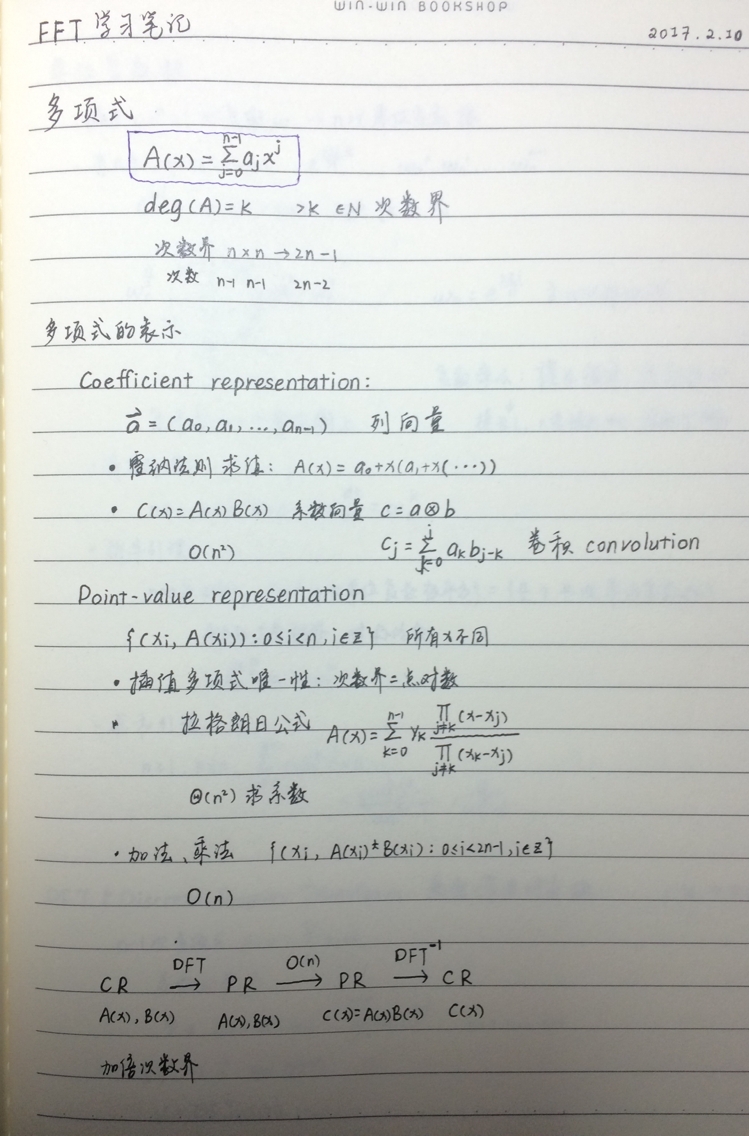 WIN-WIN BOOKSHOP
FFT 学习笔记 2017.2.10
多项式
A(x) = ∑_{j=0}^{n-1} a_j x^j
deg(A)=k >k ∈N 次数界
次数界 n×n →2n-1
次数 n-1 n-1 2n-2
多项式的表示
Coefficient representation:
→a = (a₀, a₁, ..., aₙ₋₁) 列向量
· 霍纳法则求值: A(x) = a₀+x(a₁+x(···))
· C(x)=A(x)B(x) 系数向量 c=a⊗b
O(n²) c_j = ∑_{k=0}^{j} a_k b_{j-k} 卷积 convolution
Point-value representation
{(xᵢ, A(xᵢ)): 0≤i<n, i∈Z} 所有x不同
· 插值多项式唯一性: 次数界=点对数
· 拉格朗日公式 A(x) = ∑_{k=0}^{n-1} y_k ∏_{j≠k}(x-x_j) / ∏_{j≠k}(x_k-x_j)
Θ(n²) 求系数
· 加法、乘法 {(xᵢ, A(xᵢ)±B(xᵢ): 0≤i<2n-1, i∈Z}
O(n)
CR DFT→ PR O(n)→ PR DFT⁻¹→ CR
A(x), B(x) A(x), B(x) C(x)=A(x)B(x) C(x)
加倍次数界